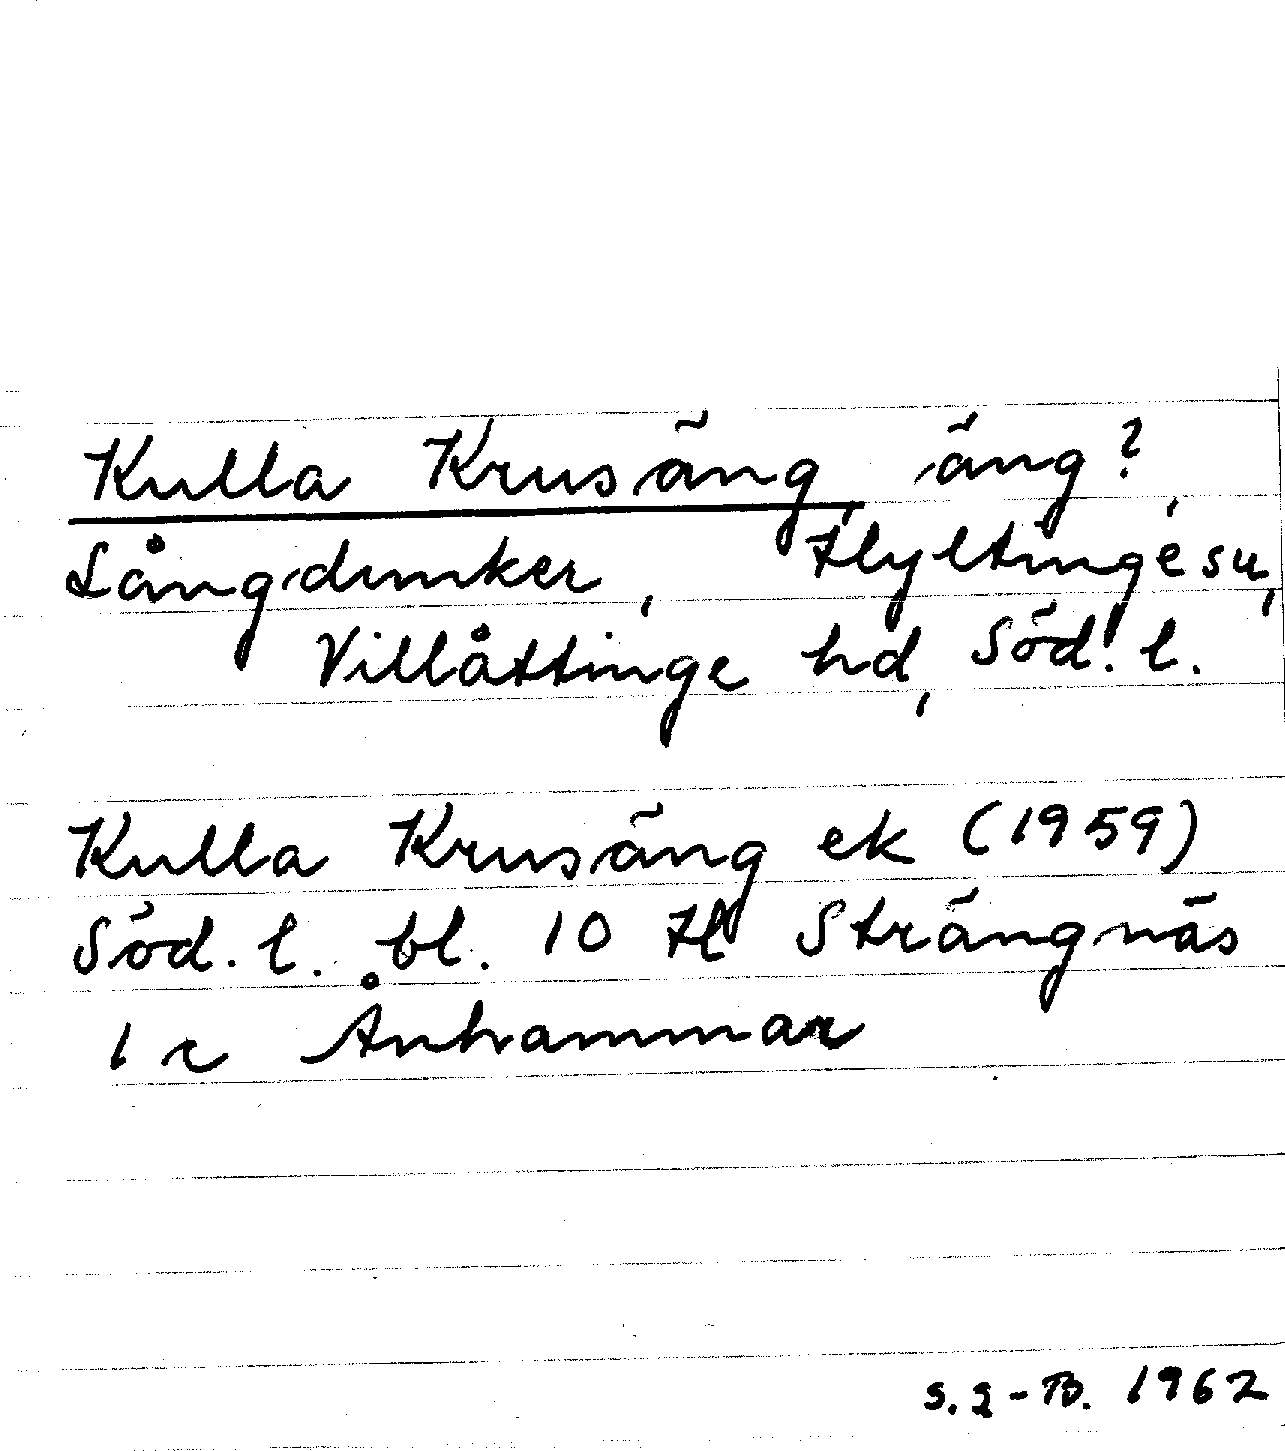 Kulla Krusäng, äng?,
Långdunker, Hyltinge su,
Villåttinge hd, Söd. l.
Kulla Krusäng ek (1959)
Söd. l. bl. 10 H Strängnäs
1 c Ånhammar
1962